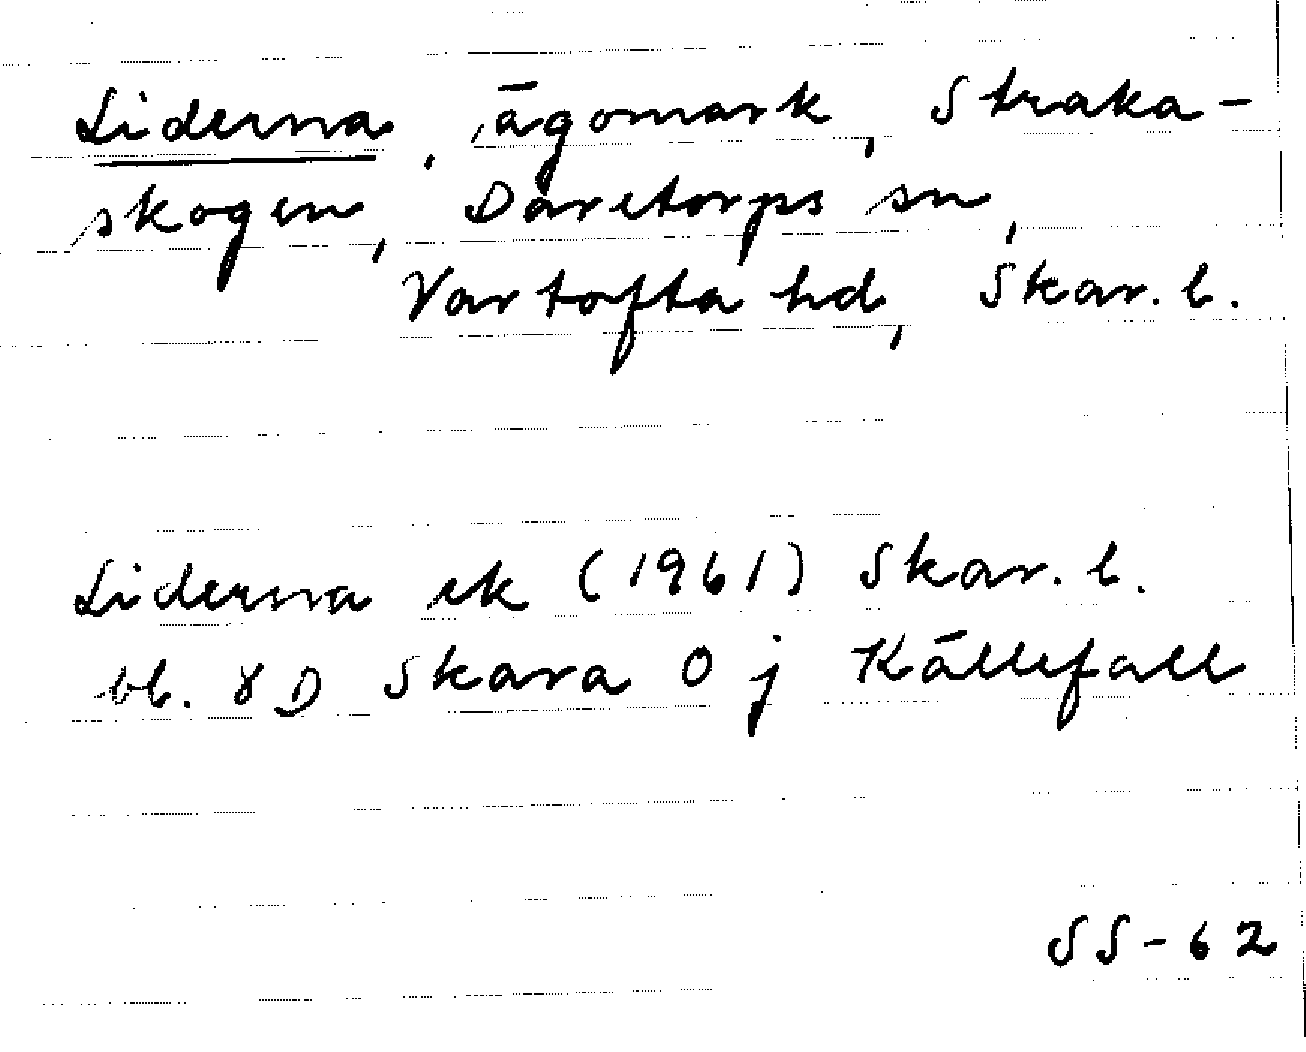 Liderna, ägomark, Straka-
skogen, Daretorps sn,
Vartofta hd, Skar. l.
Liderna ek (1961) Skar. l.
bl. 8D Skara O j Källefall
SS-62